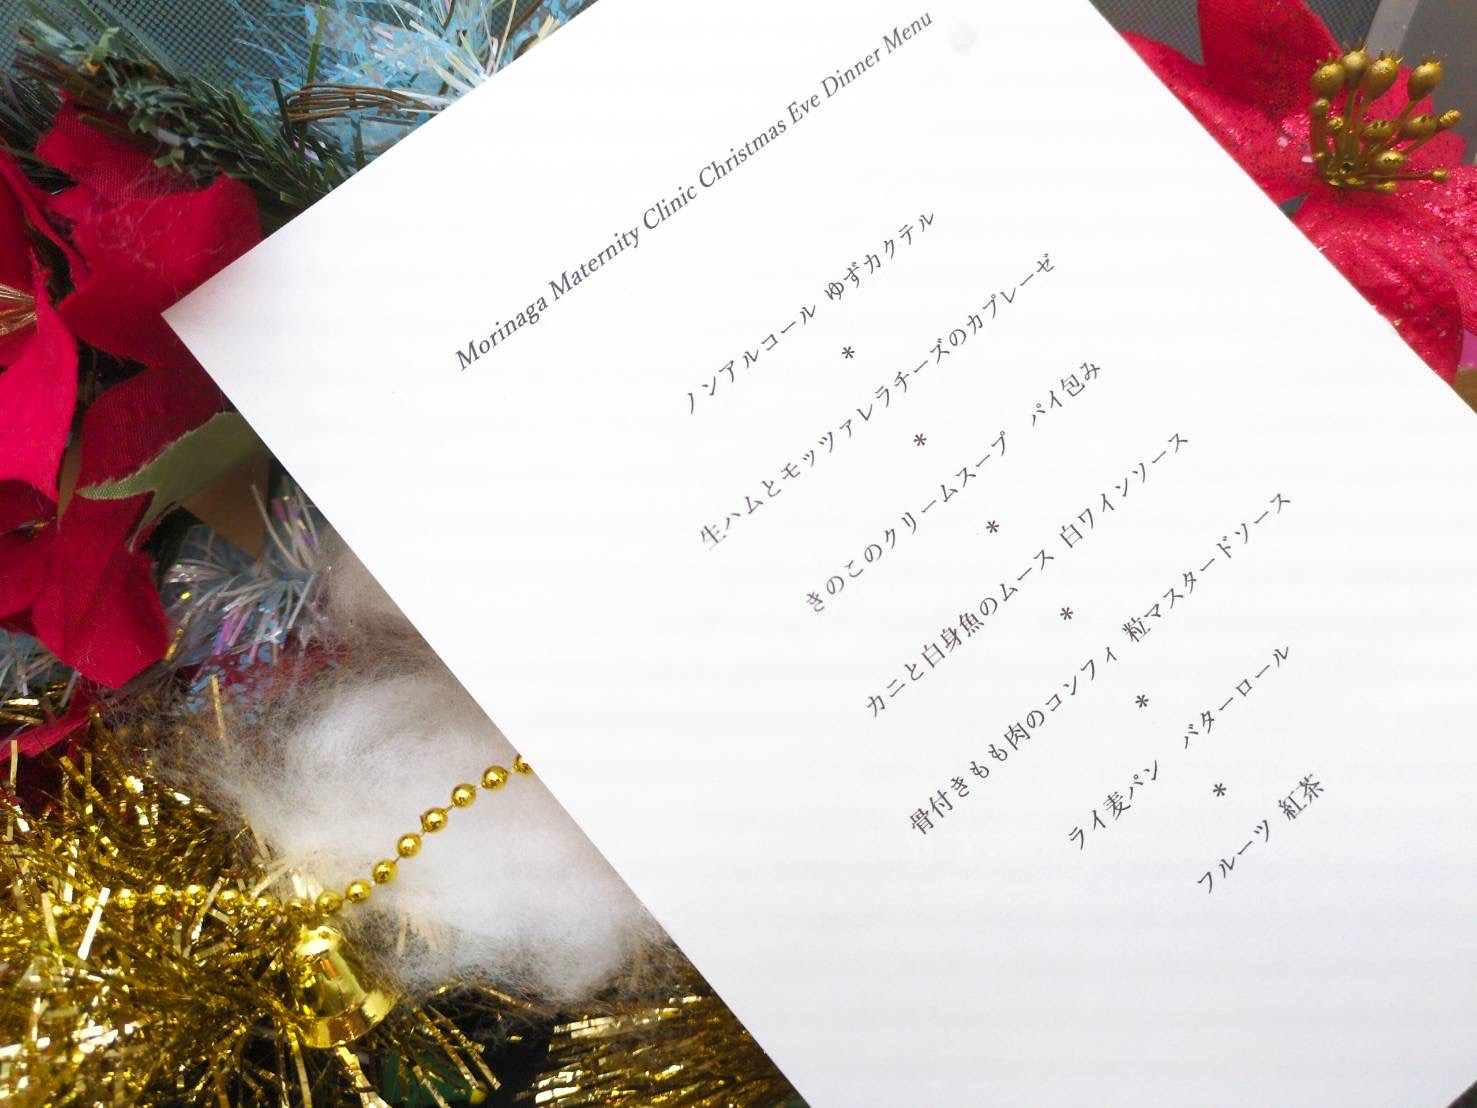 Morinaga Maternity Clinic Christmas Eve Dinner Menu
ノンアルコール ゆずカクテル
*
生ハムとモッツァレラチーズのカプレーゼ
*
きのこのクリームスープ　パイ包み
*
カニと白身魚のムース 白ワインソース
*
骨付きもも肉のコンフィ 粒マスタードソース
*
ライ麦パン　バターロール
*
フルーツ 紅茶